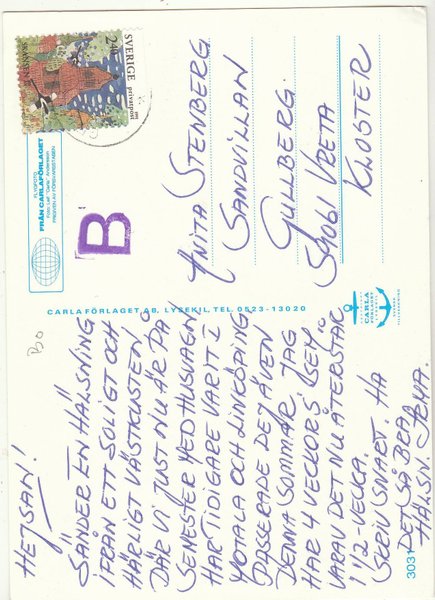 HEJSAN!
SÄNDER EN HÄLSNING
IFRÅN ETT SOLIGT OCH
HÄRLIGT VÄSTKUSTEN,
DÄR VI JUST NU ÄR PÅ
SEMESTER MED HUSVAGN
HAR TIDIGARE VARIT I
MOTALA OCH LINKÖPING
PASSERADE DEJ ÄVEN
DENNA SOMMAR. JAG
HAR 4 VECKORS SEM.
VARAV DET NU ÅTERSTÅR
1 1/2-VECKA.
SKRIV SNART. HA
DET SÅ BRA
HÄLSN
3031
CARLAFÖRLAGET AB, LYSEKIL, TEL. 0523-13020
Bo
FRÅN CARLAFÖRLAGET
B
SVERIGE
privatpost
2.40
SKANSEN
ANITA STENBERG
SANDVILLAN
GULLBERG
59061 VRETA
KLOSTER
CARLA
FÖRLAGET